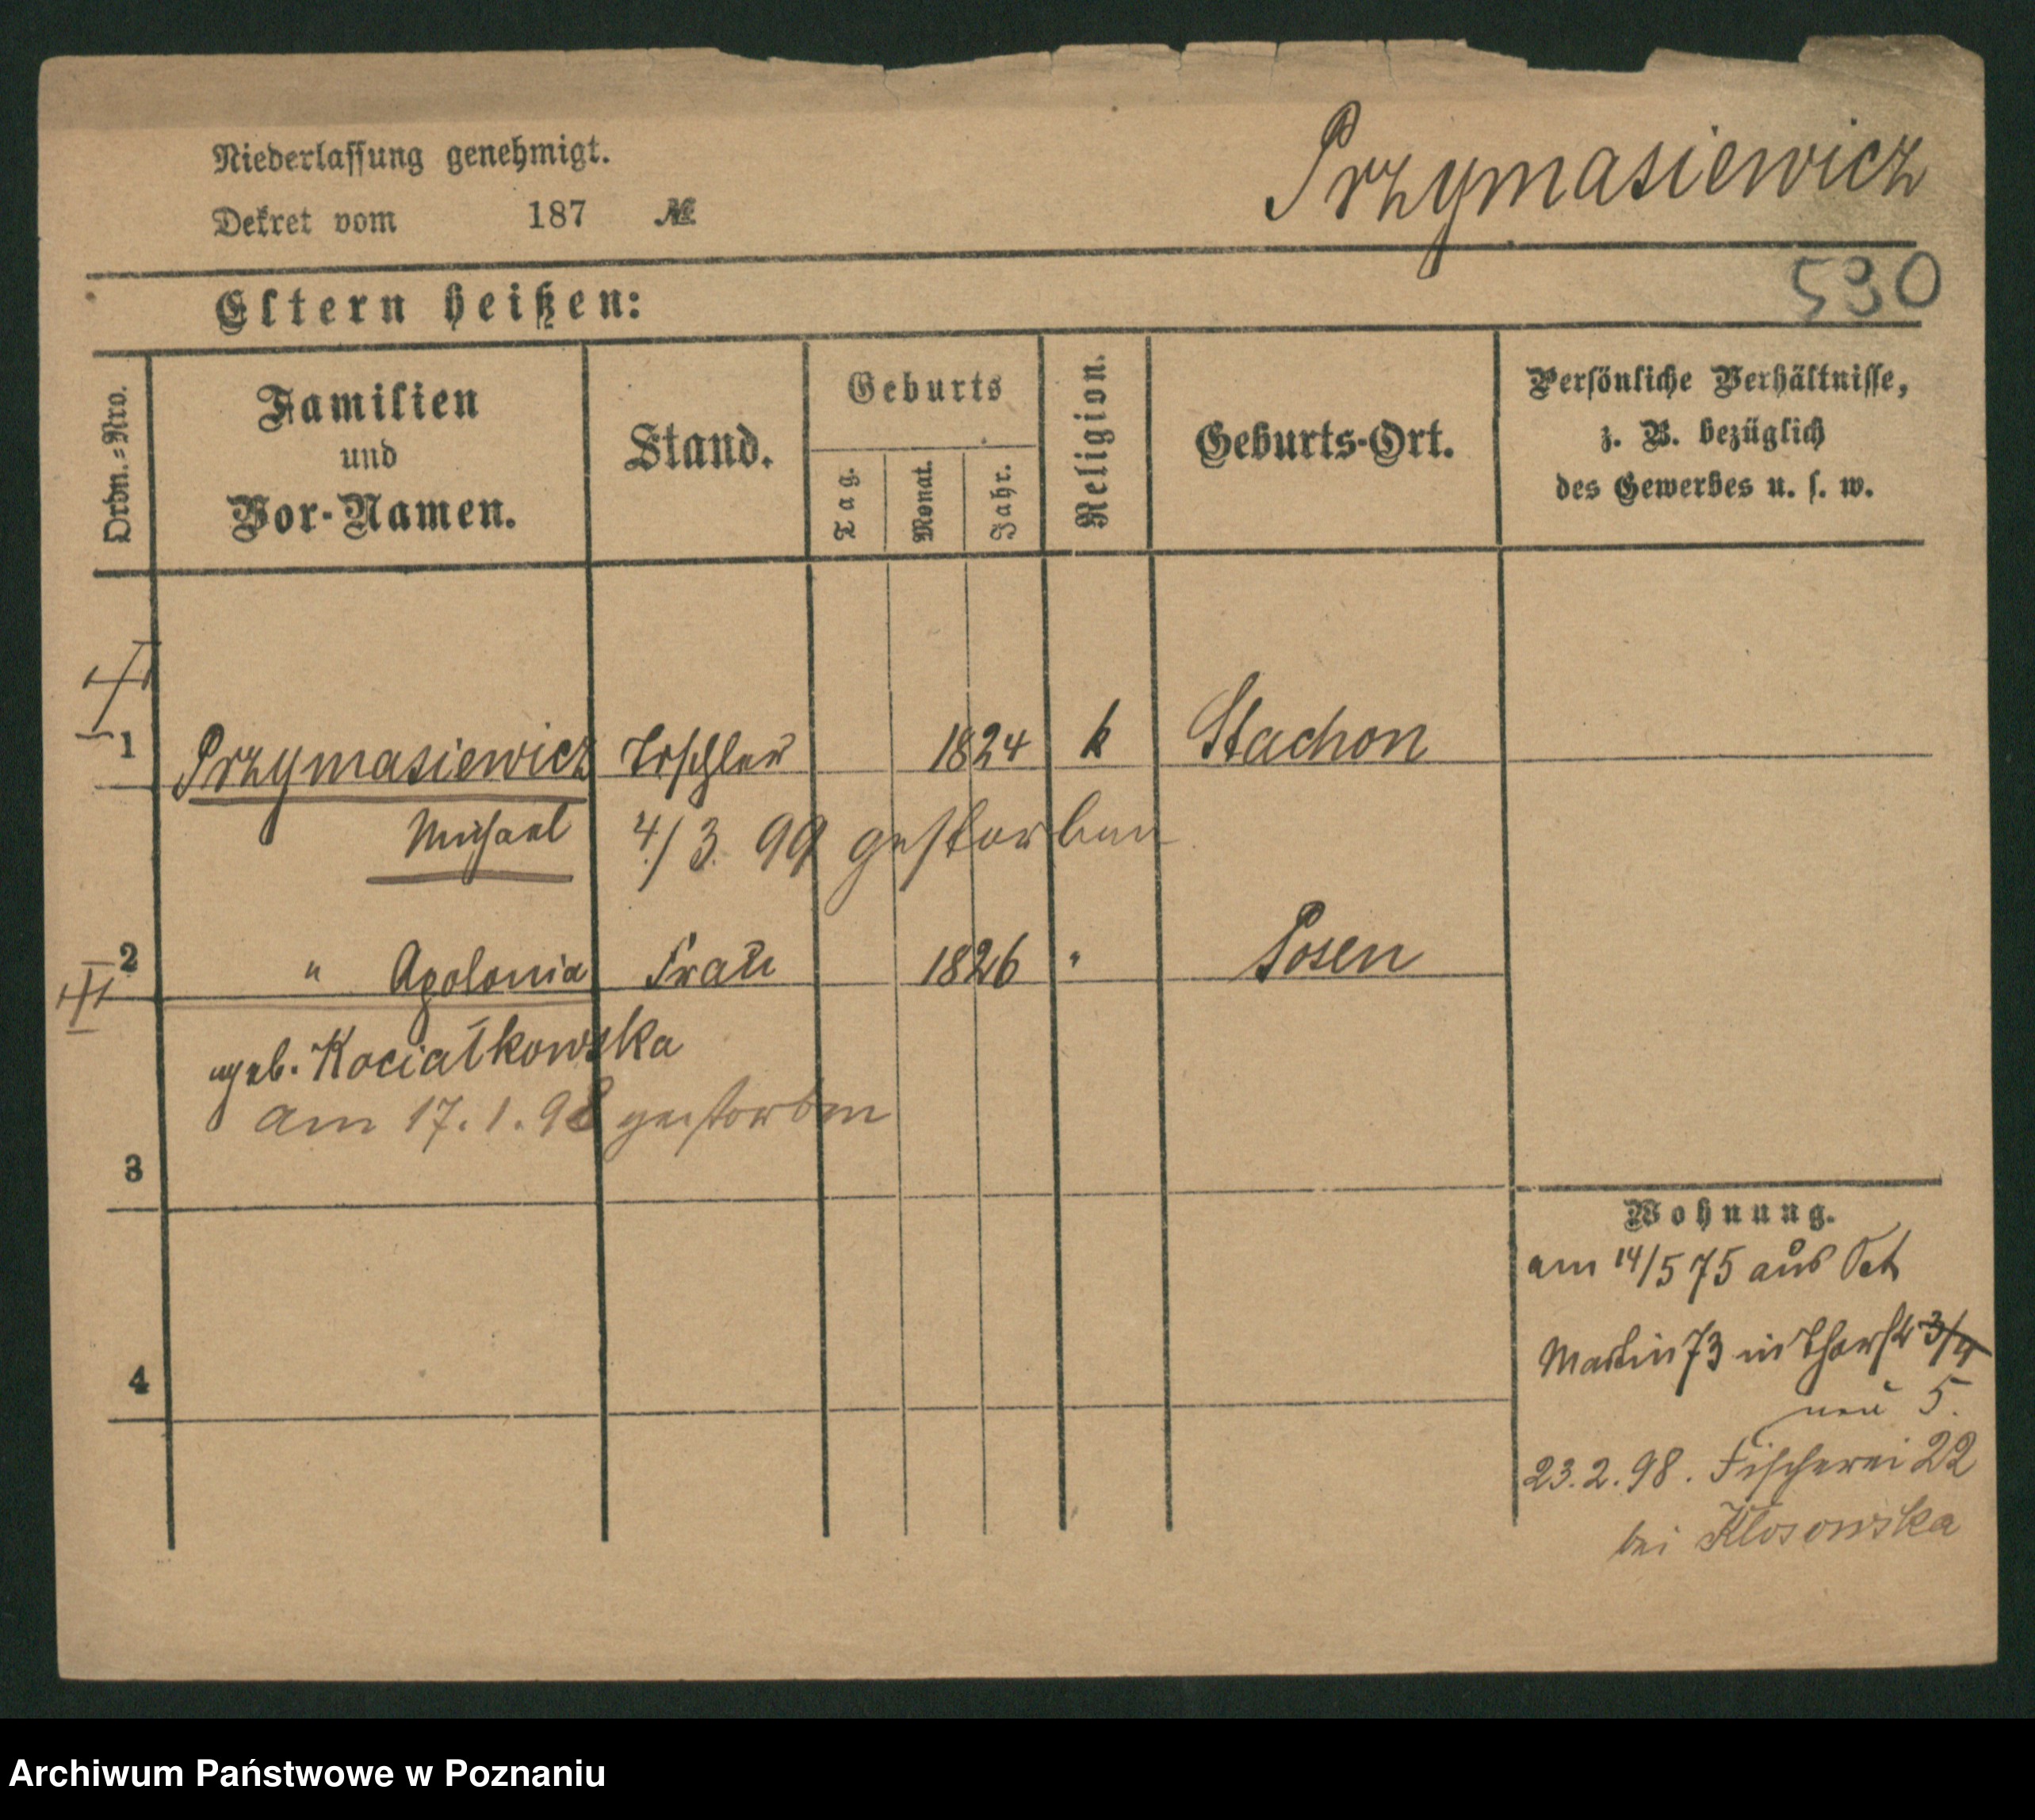 Niederlassung genehmigt.
Dekret vom 187 №
Przymasiewicz
530
Eltern heißen:
Ordn.=Nro.
Familien
und
Vor-Namen.
Stand.
Geburts
Tag.
Monat.
Jahr.
Religion.
Geburts-Ort.
Persönliche Verhältnisse,
z. B. bezüglich
des Gewerbes u. s. w.
1 Przymasiewicz Tischler 1824 k Stachon
Michael 4/3. 99 gestorben
2 " Apolonia Frau 1826 " Posen
geb. Kociałkowska
am 17.1.98 gestorben
3
4
Wohnung.
am 14/5 75 aus Sct
Martin 73 in Thorstr 3/4
neu 5.
23.2.98. Fischerei 22
bei Klosowska
Archiwum Państwowe w Poznaniu